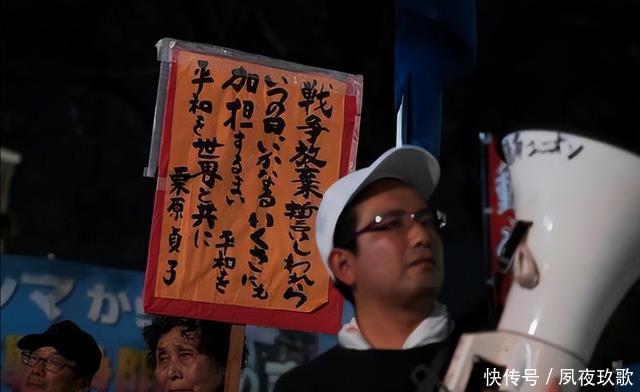 戦争放棄誓いしわれら
いつの日いかなるいくさにも
加担するまい 平和を
平和を世界と共に
栗原貞子
ユニオン
マから
快传号/夙夜玖歌